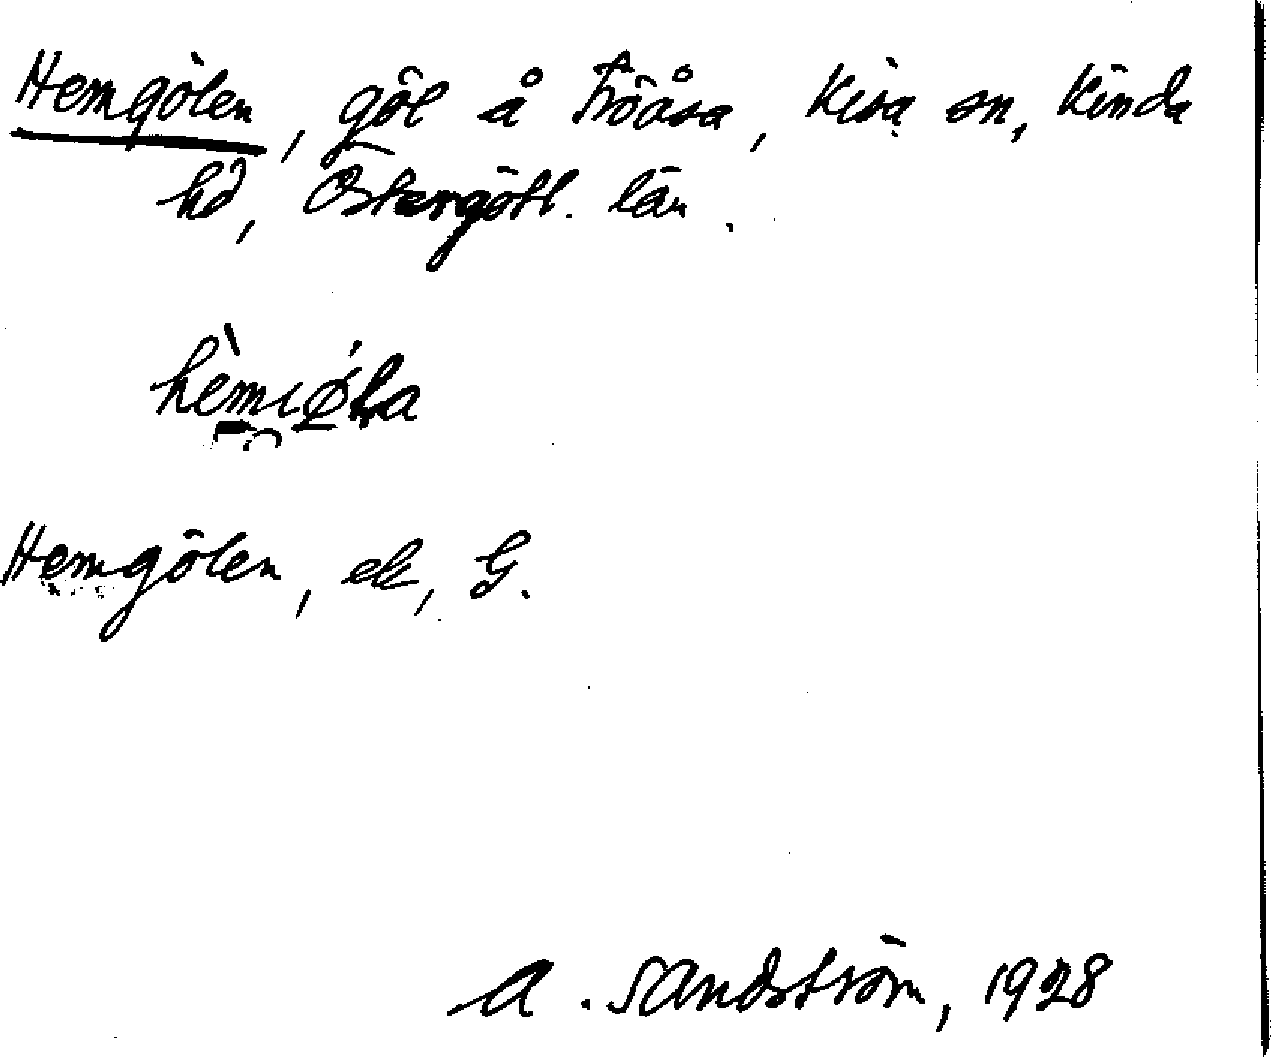 Hemgölen, göl å Tröåsa, Kisa sn, Kinda
hd, Östergötl. län.
Hemgölen, ek, G.
A. Sandström, 1928